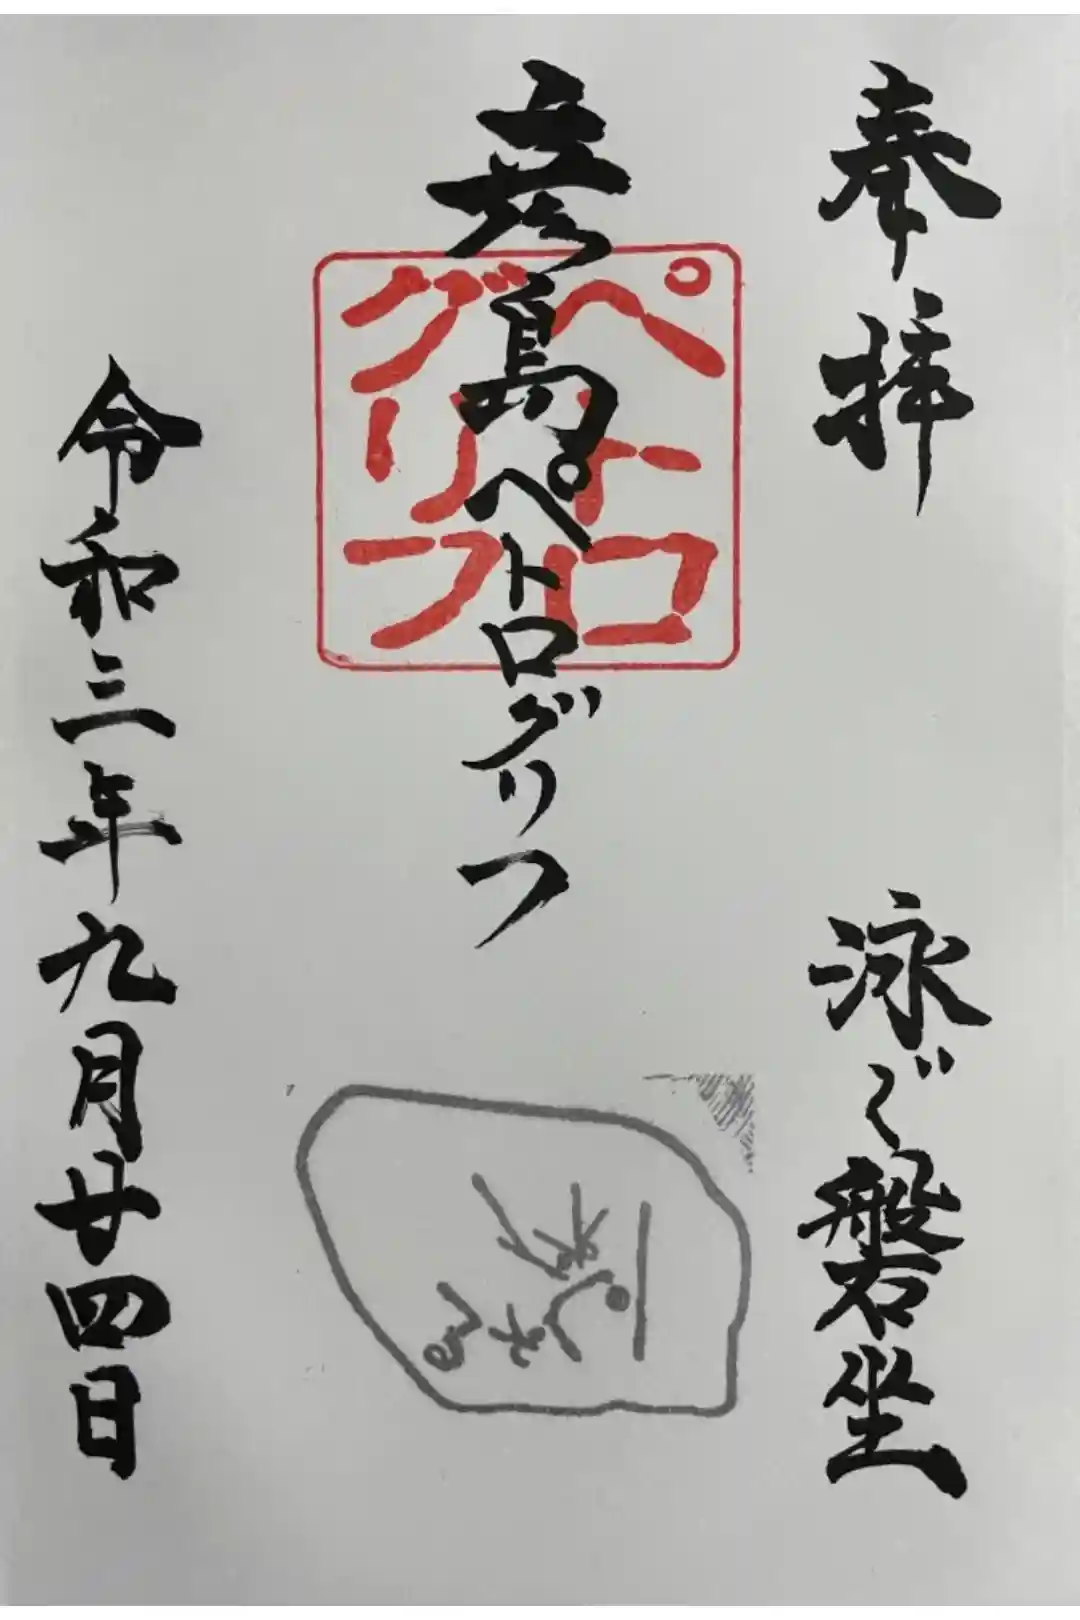 奉拝
泳ぐ磐座
彦島ペトログリフ
ペトロ
グリフ
令和三年九月廿四日